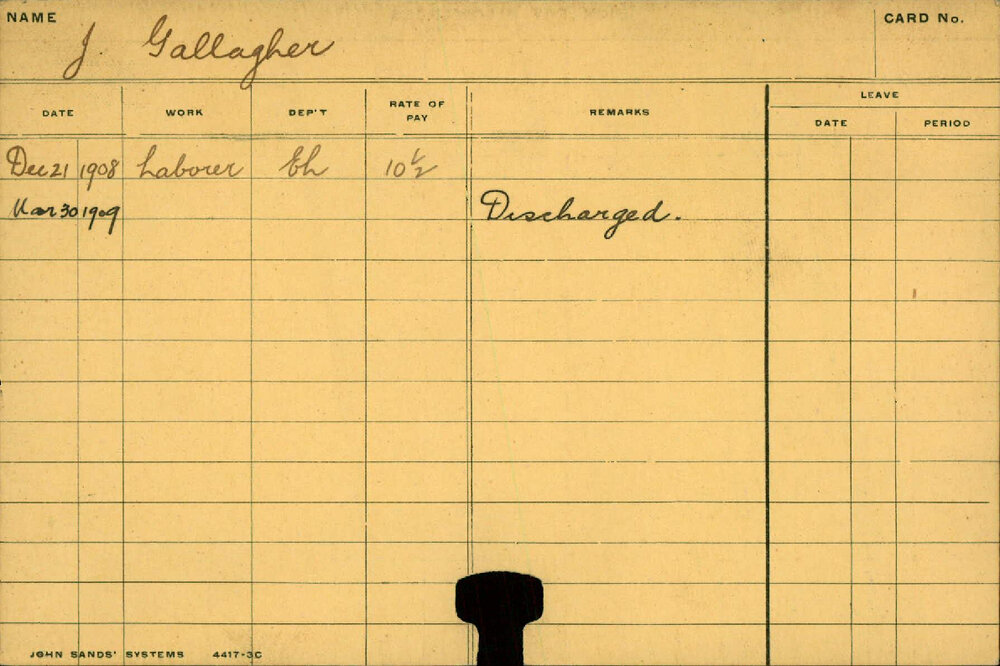 NAME J. Gallagher CARD No.
DATE WORK DEP'T RATE OF PAY REMARKS LEAVE
DATE PERIOD
Dec 21 1908 Laborer Eh 10 1/2
Mar 30 1909 Discharged.
JOHN SANDS' SYSTEMS 4417-3C